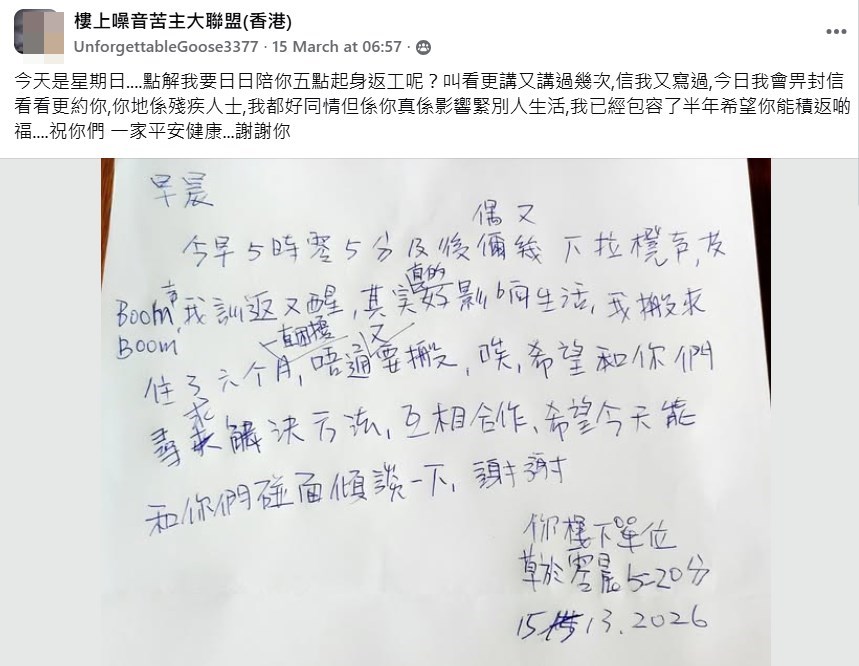 樓上噪音苦主大聯盟(香港)
UnforgettableGoose3377 · 15 March at 06:57 ·
今天是星期日....點解我要日日陪你五點起身返工呢？叫看更講又講過幾次,信我又寫過,今日我會畀封信
看看更約你,你地係殘疾人士,我都好同情但係你真係影響緊別人生活,我已經包容了半年希望你能積返啲
福....祝你們 一家平安健康...謝謝你
早晨
偶又
今早5時零5分及後彌幾下拉櫈声,及
真的
Boom声我訓返又醒,其实好影响生活,我搬來
Boom
一直困擾 又
住了六个月,唔通要搬,唉,希望和你們
求
尋解決方法,互相合作,希望今天能
和你們碰面傾談一下,謝謝
你樓下單位
草於零晨5-20分
15 13.2026